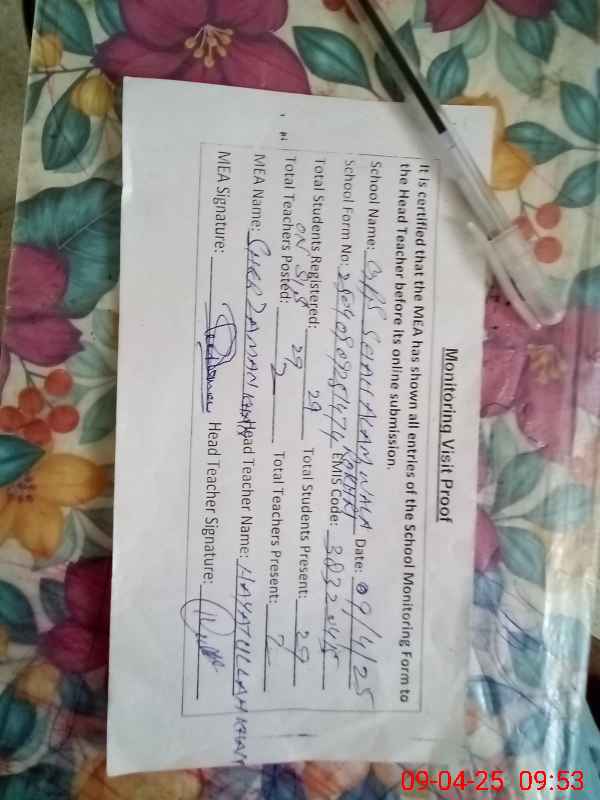 Monitoring Visit Proof
It is certified that the MEA has shown all entries of the School Monitoring Form to
the Head Teacher before its online submission.
School Name: Date: 09/4/25
School Form No: EMIS Code:
Total Students Registered: 29 Total Students Present: 29
ON SIS 29
Total Teachers Posted: 2 Total Teachers Present: 2
MEA Name: SHER ZAMAN KHAN Head Teacher Name: HAYATULLAH KHAN
MEA Signature: Head Teacher Signature:
09-04-25 09:53